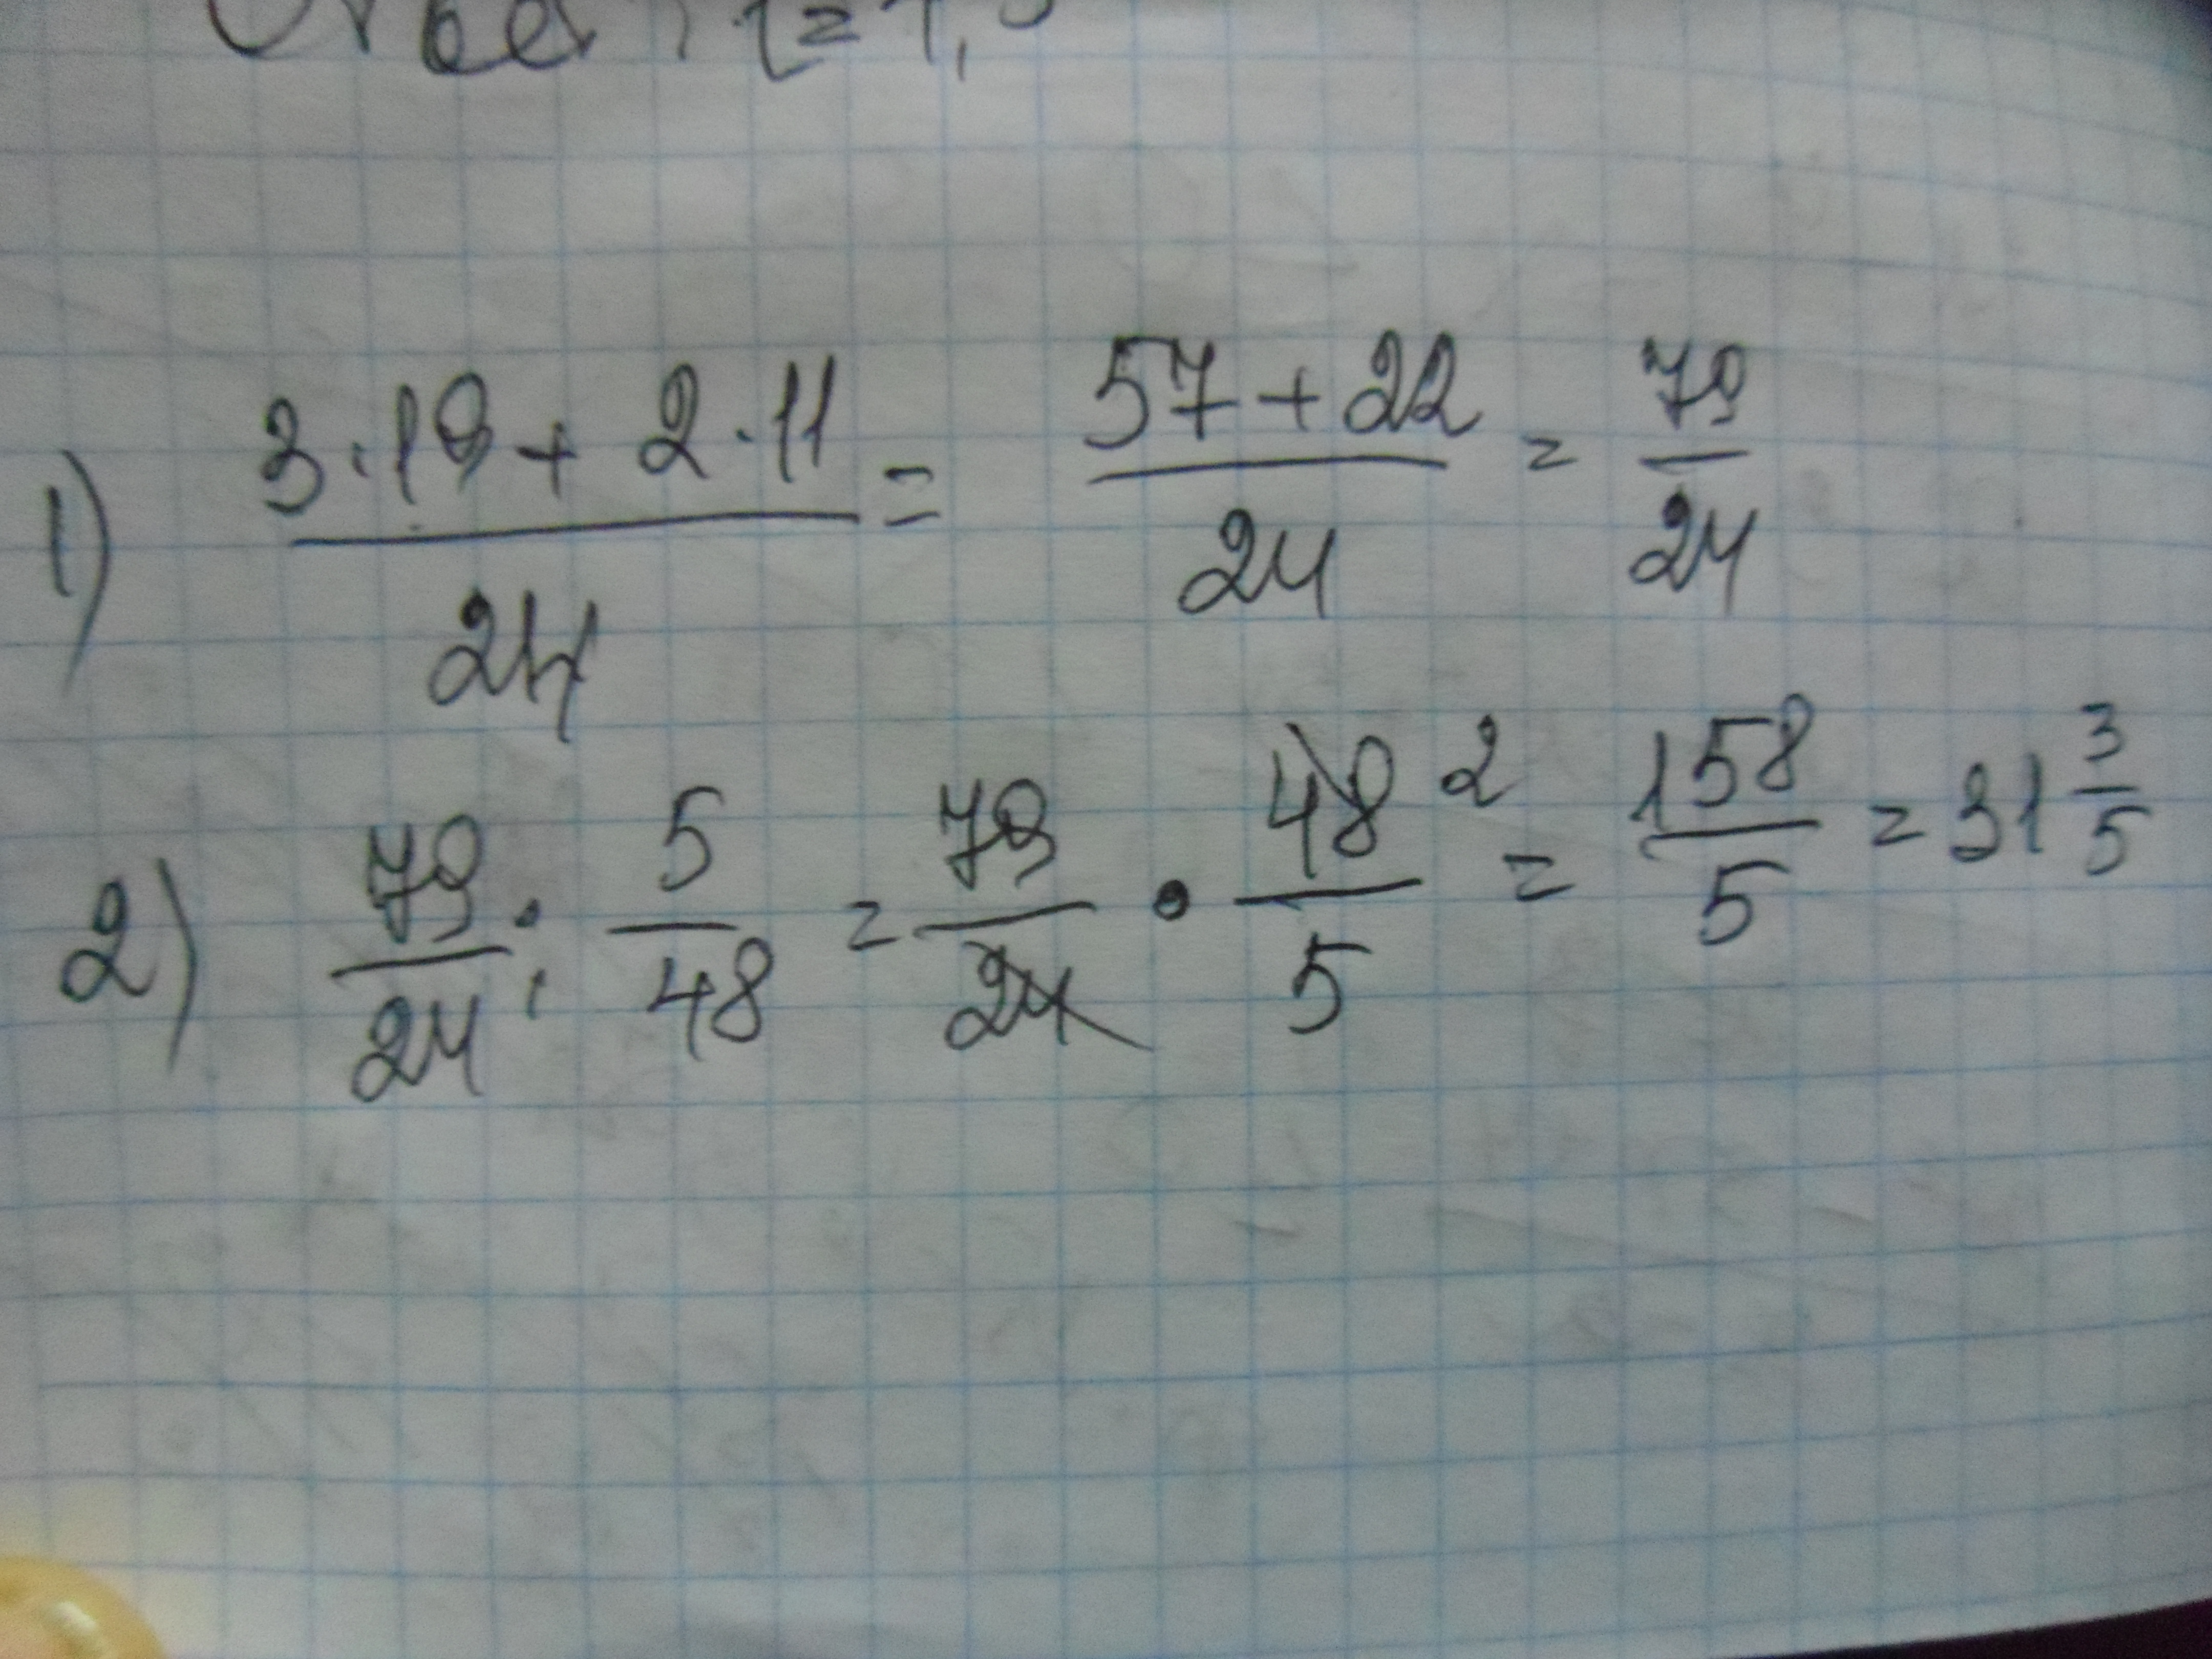 1) (3·19 + 2·11)/24 = (57 + 22)/24 = 79/24
2) 79/24 : 5/48 = 79/24 · 48/5 2 = 158/5 = 31 3/5